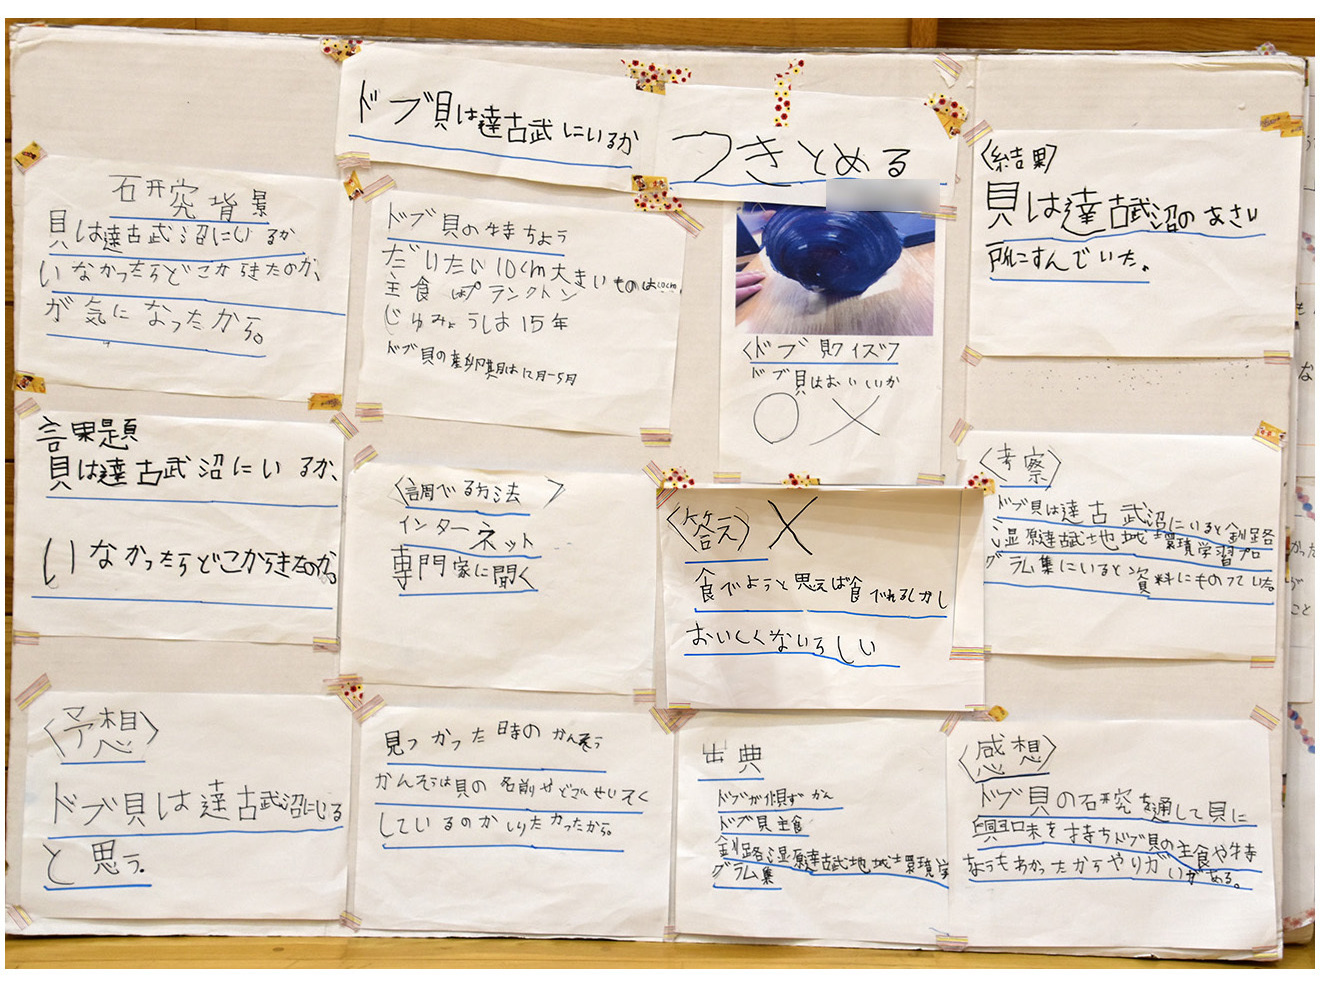 ドブ貝は達古武にいるか
つきとめる
研究背景
貝は達古武沼にいるか
いなかったらどこからきたのか、
が気になったから。
課題
貝は達古武沼にいるか、
いなかったらどこからきたのか。
〈予想〉
ドブ貝は達古武沼にいる
と思う。
ドブ貝の特ちょう
だいたい10cm大きいものは
主食はプランクトン
じゅみょうは15年
ドブ貝の産卵期は12月-5月
〈調べる方法〉
インターネット
専門家に聞く
見つかった時のかんそう
かんそうは貝の名前やどこにせいそく
しているのかしりたかったから。
〈ドブ貝クイズ〉
ドブ貝はおいしいか
〇 ×
〈答え〉 ×
食でようと思えば食でれるしかし
おいしくないらしい
出典
ドブがい図ずかん
ドブ貝主食
釧路湿原達古武地域環境学
グラム集
〈結果〉
貝は達古武沼のあさい
所にすんでいた。
〈考察〉
ドブ貝は達古武沼にいると釧路
湿原達古武地域環境学習プロ
グラム集にいると資料にものっていた。
〈感想〉
ドブ貝の研究を通して貝に
興味を持ちドブ貝の主食や特
ちょうもわかったからやりがいがある。